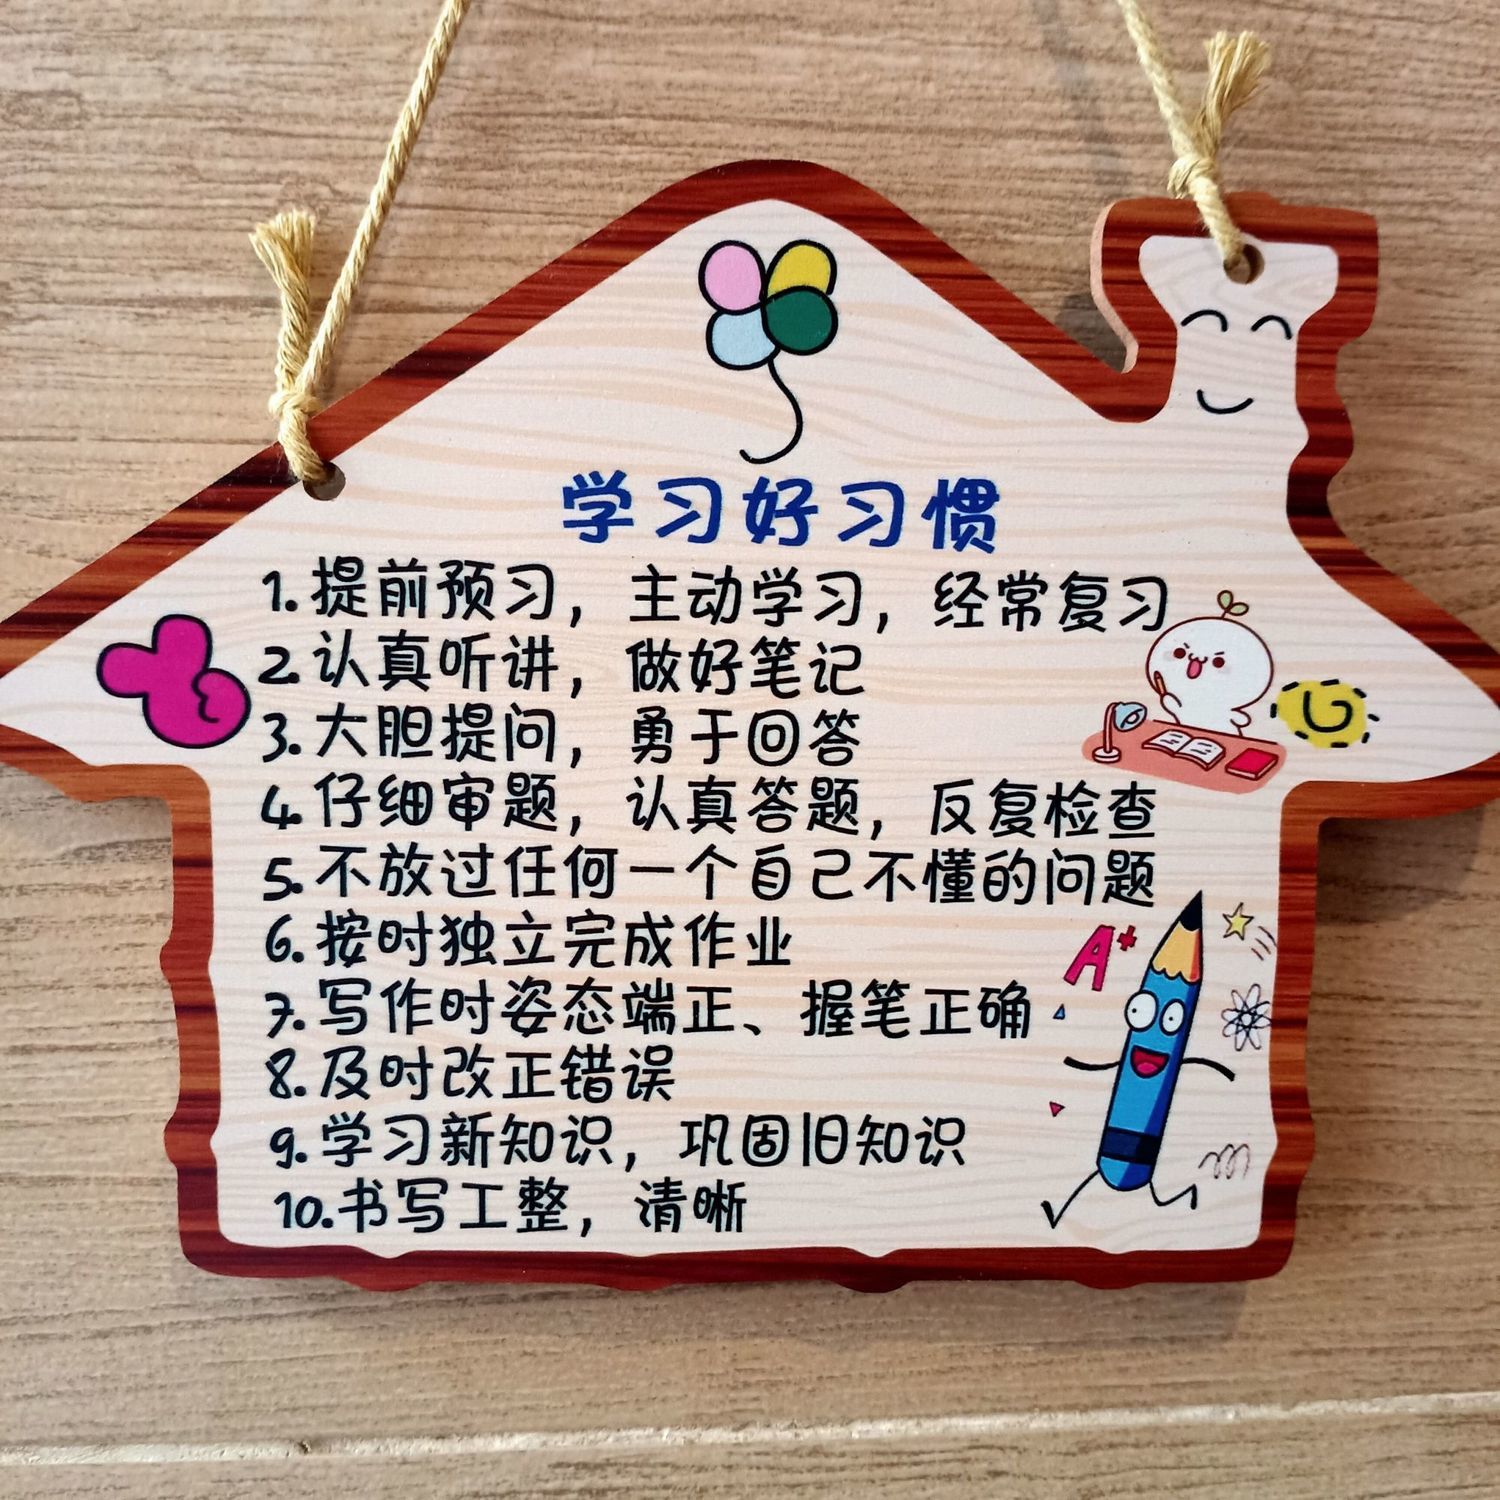 学习好习惯
1.提前预习，主动学习，经常复习
2.认真听讲，做好笔记
3.大胆提问，勇于回答
4.仔细审题，认真答题，反复检查
5.不放过任何一个自己不懂的问题
6.按时独立完成作业
7.写作时姿态端正、握笔正确
8.及时改正错误
9.学习新知识，巩固旧知识
10.书写工整，清晰
A+